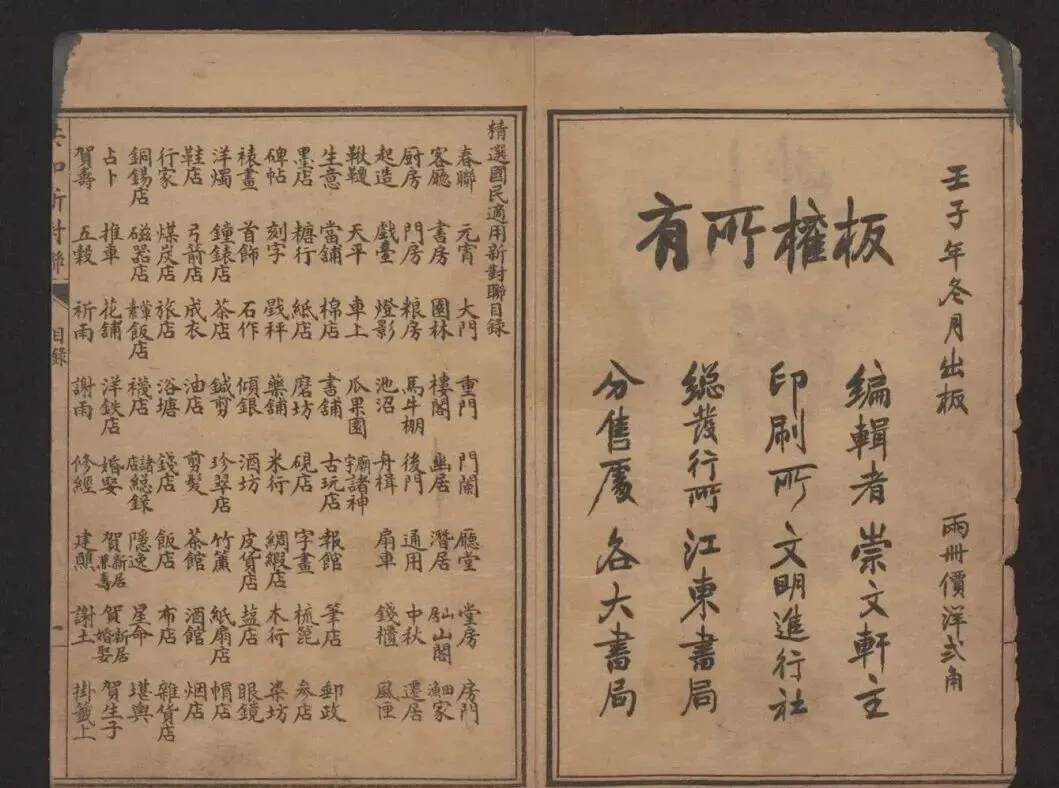 壬子年冬月出板 兩冊價洋弍角
板權所有
編輯者崇文軒主
印刷所文明進行社
總發行所江東書局
分售處各大書局
精選國民適用新對聯目錄
春聯 元宵 大門 重門 門闌 廳堂 堂房 房門
客廳 書房 園林 樓閣 幽居 潛居 山閣 家
厨房 門房 粮房 馬牛棚 後門 通用 中秋 遷居
起造 戲臺 燈影 池沼 舟楫 扇車 錢櫃 風匣
鞦韆 天平 車上 瓜果園 廟宇諸神
生意 當舖 棉店 書舖 古玩店 報館 筆店 郵政
墨店 糖行 紙店 磨坊 硯店 字畫 梳篦 參店
碑帖 刻字 戥秤 藥舖 米行 綢緞店 木行 染坊
裱畫 首飾 石作 傾銀 酒坊 皮貨店 盐店 眼鏡
洋燭 鐘錶店 茶店 鍼剪 珍翠店 竹簾 紙扇店 帽店
鞋店 弓箭店 成衣 油店 剪髮 茶館 酒館 烟店
行家 煤炭店 旅店 浴塘 錢店 飯店 布店 雜貨店
銅錫店 磁器店 葷素飯店 襪店 諸店総錄 隱逸 星命 堪輿
占卜 推車 花舖 洋鉄店 婚娶 賀新居兼壽 賀新居婚娶 賀生子
賀壽 五穀 祈雨 謝雨 修經 建醮 謝土 掛籤上
共和新對聯 目錄 一